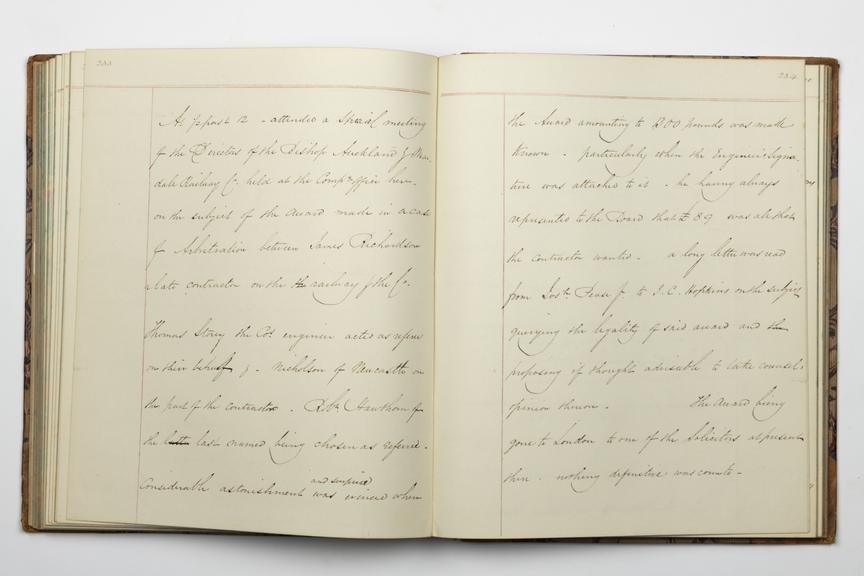 233
At ½ past 12 - attended a Special meeting
of the Directors of the Bishop Auckland & Wear
dale Railway Co. held at the Compys office here -
on the subject of the award made in a case
of Arbitration between James Richardson
a late contractor on the the railway of the Co.
Thomas Storey the Cos. engineer acted as referee
on their behalf & - Nicholson of Newcastle on
the part of the contractor. Robt Hawthorn of
the last named being chosen as referee.
Considerable astonishment and surprise was evinced when
234
the Award amounting to 800 pounds was made
Known - particularly when the Engineers signa
ture was attached to it - he having always
represented to the Board that £ 89 was all that
the contractor wanted - a long letter was read
from Josh. Pease Jr. to I. C. Hopkins on the subject
querying the legality of said award and the
proposing if thought adviseable to take counsels
opinion thereon. The Award being
gone to London to one of the Solicitors at present
there. nothing definitive was come to -